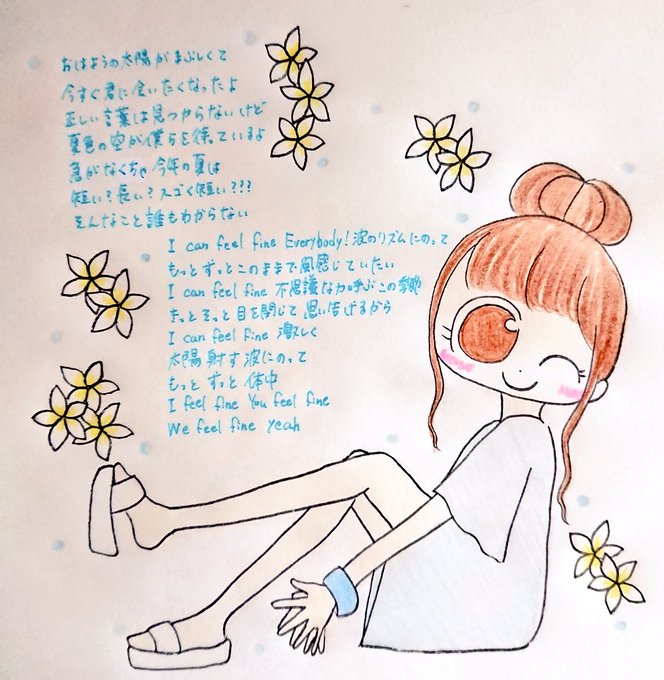 おはようの太陽がまぶしくて
今すぐ君に会いたくなったよ
正しい言葉は見つからないけど
夏色の空が僕らを待っているよ
急がなくちゃ 今年の夏は
短い？長い？スゴく短い？？？
そんなこと誰もわからない
I can feel fine Everybody! 波のリズムにのって
もっと ずっとこのままで 風感じていたい
I can feel fine 不思議な力呼ぶこの季節
きっと そっと 目を閉じて 思い告げるから
I can feel fine 激しく
太陽 射す 波にのって
もっと ずっと 体中
I feel fine You feel fine
We feel fine Yeah